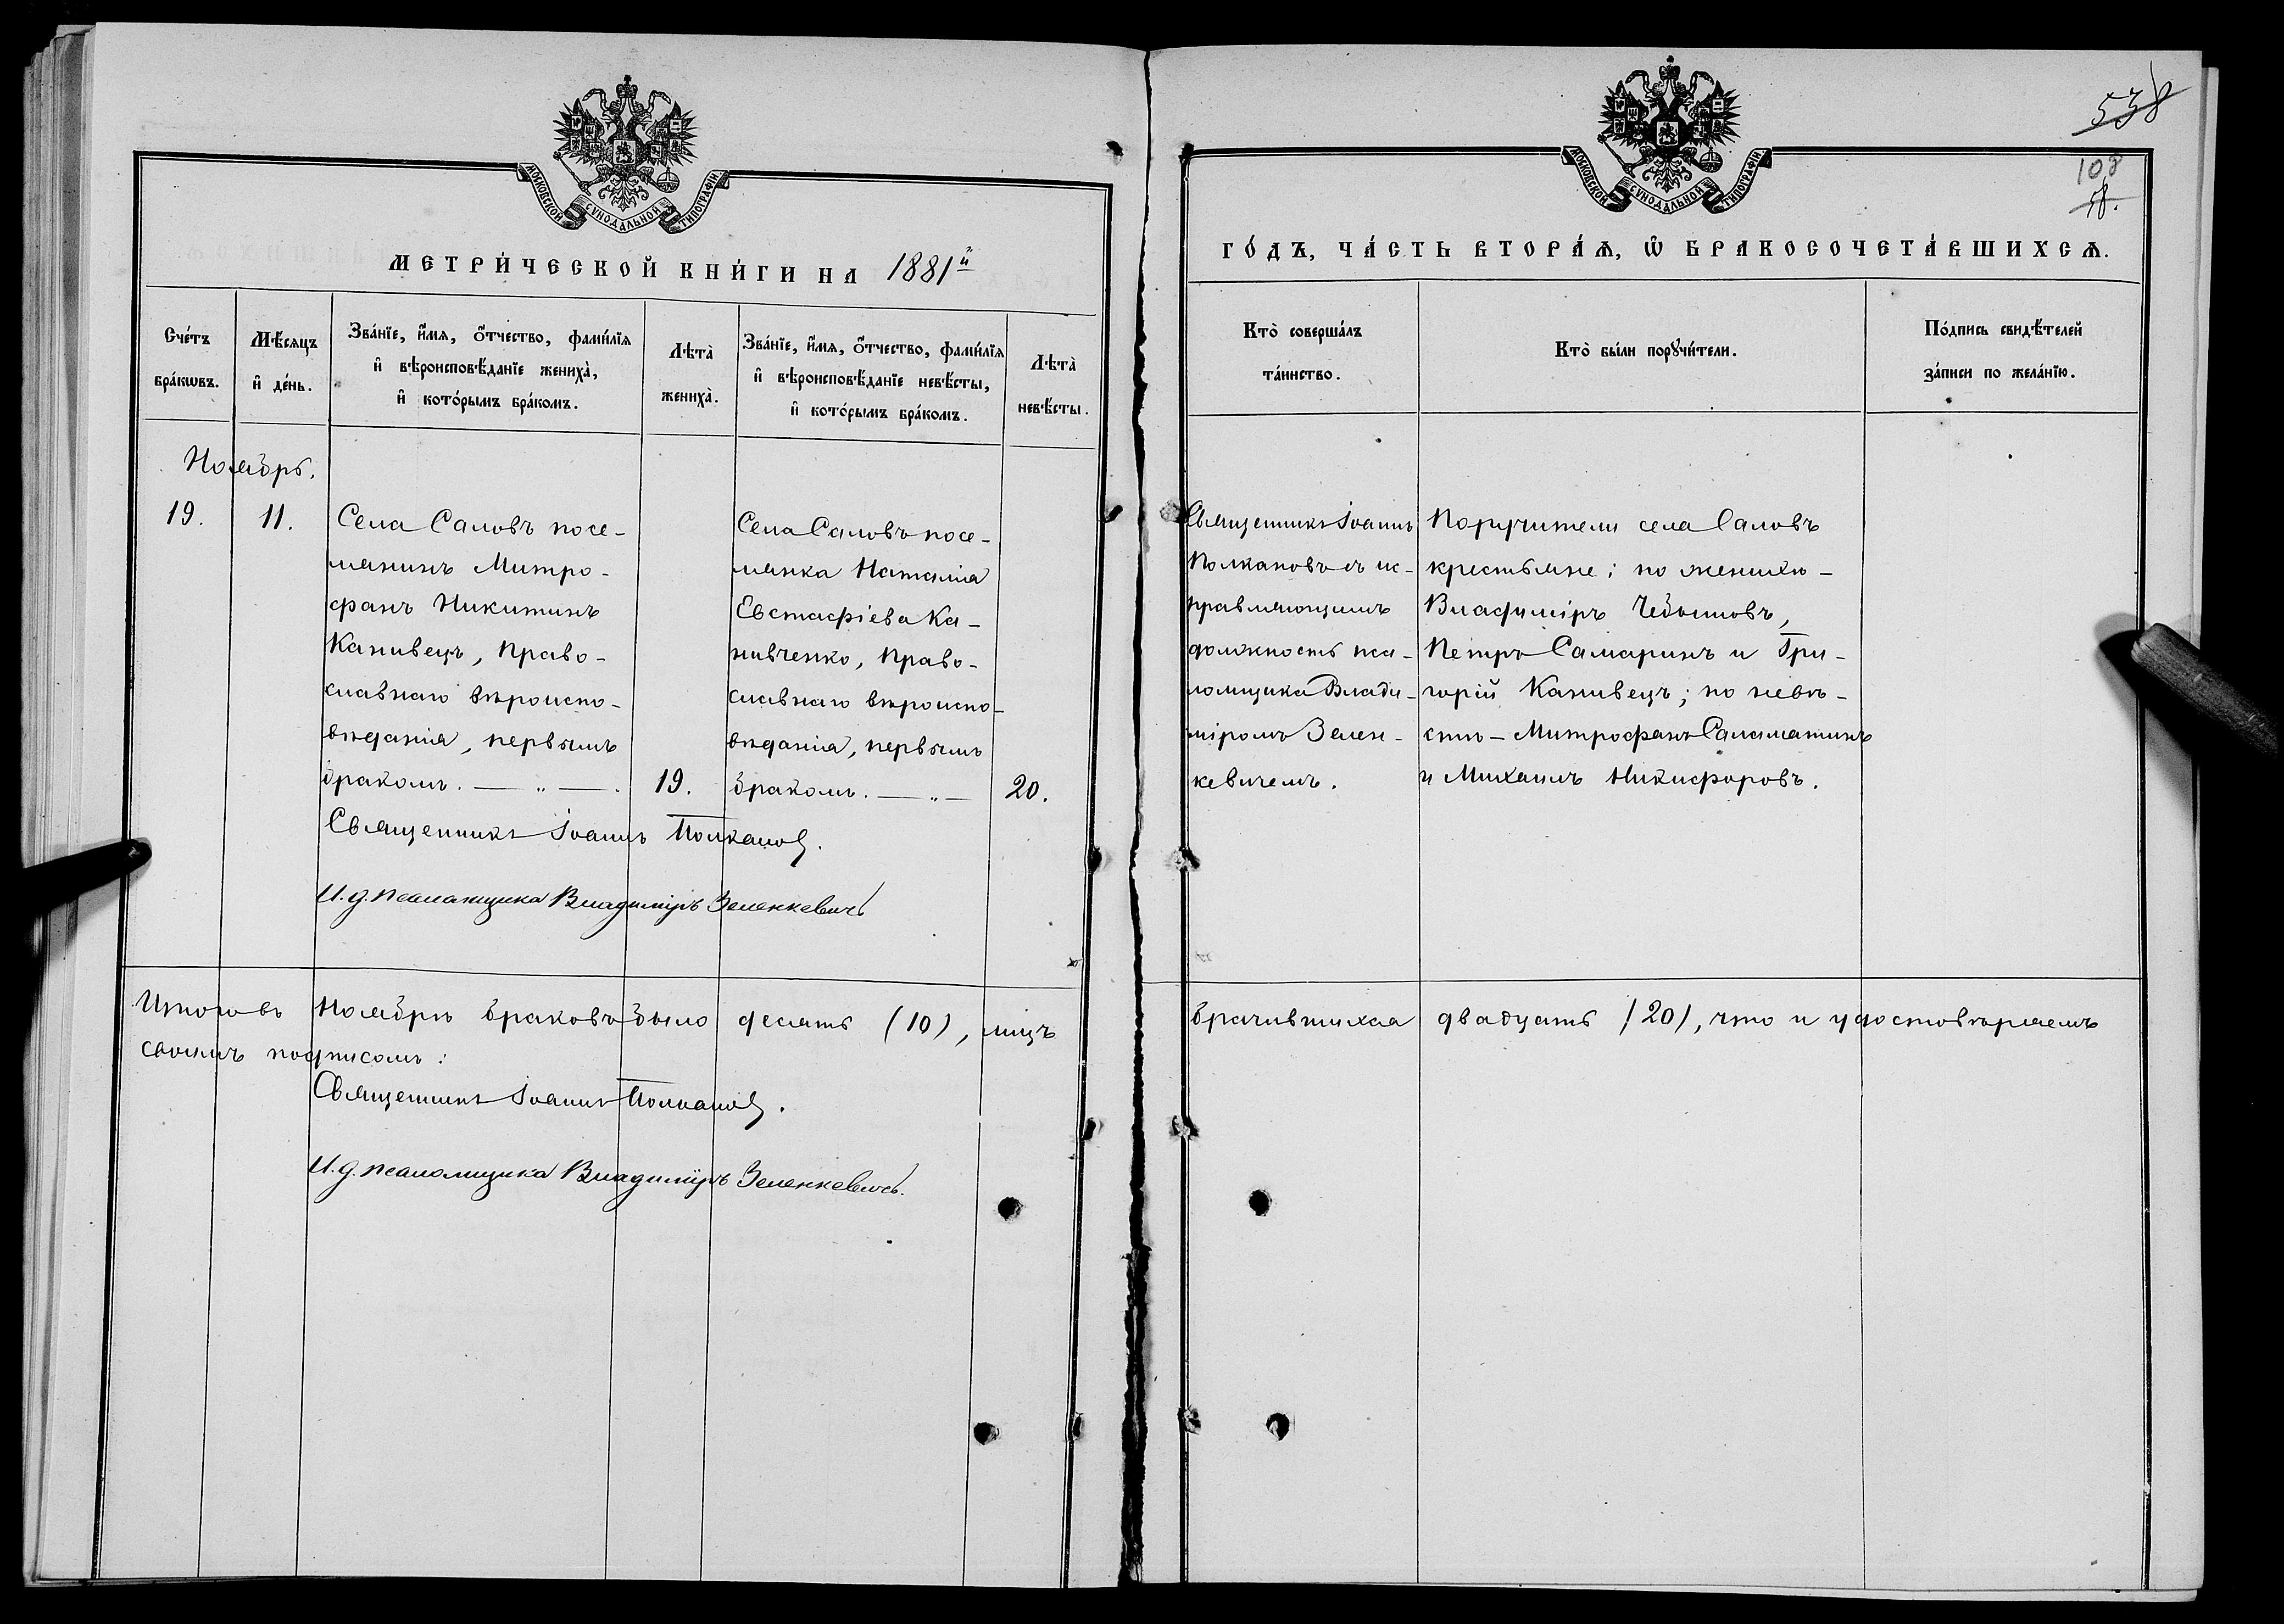 МОСКОВСКОЙ СУНОДАЛЬНОЙ ТИПОГРАФІИ
МЕТРИ́ЧЕСКОЙ КНИ́ГИ НА 1881й
Сче́тъ бра́кωвъ.
Мѣ́сяцъ и҆ де́нь.
Зва́нїе, и҆́мя, ѻ҆́тчество, фами́лїя
и҆ вѣроисповѣ́данїе жениха̀,
и҆ кото́рымъ бра́комъ.
Лѣта̀ жениха̀.
Зва́нїе, и҆́мя, ѻ҆́тчество, фами́лїя
и҆ вѣроисповѣ́данїе невѣ́сты,
и҆ кото́рымъ бра́комъ.
Лѣта̀ невѣ́сты.
Ноябрь.
19.
11.
Села Саловъ посе-
лянинъ Митро-
фанъ Никитинъ
Канивецъ, Право-
славнаго вѣроиспо-
вѣданія, первымъ
бракомъ. — „ — .
19.
Села Саловъ посе-
лянка Наталія
Евстафіева Ка-
нивченко, Право-
славнаго вѣроиспо-
вѣданія, первымъ
бракомъ. — „ —
20.
Священникъ Іоаннъ Полкановъ.
И.д. псаломщика Владиміръ Зеленкевичъ
Итого въ Ноябрѣ браковъ было десять (10), лицъ
своимъ подписомъ:
Священникъ Іоаннъ Полкановъ.
И.д. псаломщика Владиміръ Зеленкевичъ.
538
108
МОСКОВСКОЙ СУНОДАЛЬНОЙ ТИПОГРАФІИ
ГО́ДЪ, ЧА́СТЬ ВТОРА́Я, Ѽ БРАКОСОЧЕТА́ВШИХСЯ.
Кто̀ соверша́лъ
та́инство.
Кто̀ бы́ли порꙋчи́тели.
По́дпись свидѣ́телей
за́писи по жела́нїю.
Священникъ Іоаннъ
Полкановъ съ ис-
правляющимъ
должность пса-
ломщика Влади-
міромъ Зелен-
кевичемъ.
Поручители села Саловъ
крестьяне: по женихѣ -
Владиміръ Чебышовъ,
Петръ Самаринъ и Гри-
горій Канивецъ; по невѣ-
стѣ - Митрофанъ Саламатинъ
и Михаилъ Никифоровъ.
брачившихся двадцать (20), что и удостовѣряемъ